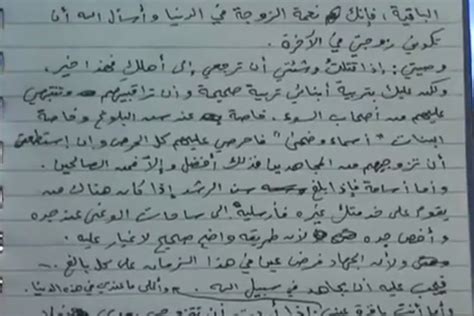 الباقية، فإنك نعمة الزوجة في الدنيا وأسأل الله أن
تكوني زوجتي في الآخرة.
وصيتي: إذا قتلت وشئتي أن ترجعي إلى أهلك فهذا خير،
ولكن عليك بتربية أبنائي تربية صحيحة وأن تراقبيهم وتنتبهي
عليهم من أصحاب السوء. خاصة عند سن البلوغ وخاصة
البنات "أسماء وضحى" فاحرصي عليهم كل الحرص وإن استطعتي
أن تزوجيهم من المجاهدين فذلك أفضل وإلا فمن الصالحين.
وأما أسامة فإذا بلغ سن الرشد إذا كان هناك من
يقوم على خدمتك غيره فأرسليه إلى ساحات الوغى عند جده
وأخص جده لأن طريقه واضح صحيح لا غبار عليه.
ولأن الجهاد فرض عين في هذا الزمان على كل بالغ.
فيجب عليه أن يجاهد في سبيل الله. وأقلل ما عندي في هذه الدنيا.